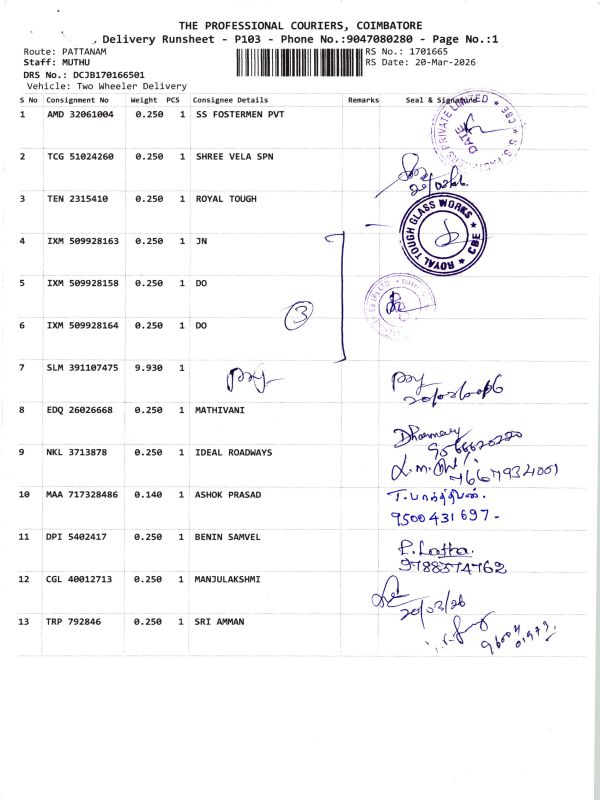 THE PROFESSIONAL COURIERS, COIMBATORE
Delivery Runsheet - P103 - Phone No.:9047080280 - Page No.:1
Route: PATTANAM RS No.: 1701665
Staff: MUTHU RS Date: 20-Mar-2026
DRS No.: DCJB170166501
Vehicle: Two Wheeler Delivery
S No Consignment No Weight PCS Consignee Details Remarks Seal & Signature
1 AMD 32061004 0.250 1 SS FOSTERMEN PVT
PRIVATE LIMITED * CBE * DATE
2 TCG 51024260 0.250 1 SHREE VELA SPN
3 TEN 2315410 0.250 1 ROYAL TOUGH
ROYAL TOUGH GLASS WORKS * CBE *
4 IXM 509928163 0.250 1 JN
5 IXM 509928158 0.250 1 DO
3
6 IXM 509928164 0.250 1 DO
7 SLM 391107475 9.930 1
8 EDQ 26026668 0.250 1 MATHIVANI
9 NKL 3713878 0.250 1 IDEAL ROADWAYS
7667934001
10 MAA 717328486 0.140 1 ASHOK PRASAD
9500431697-
11 DPI 5402417 0.250 1 BENIN SAMVEL
P. Latha.
9788574762
12 CGL 40012713 0.250 1 MANJULAKSHMI
20/03/26
13 TRP 792846 0.250 1 SRI AMMAN